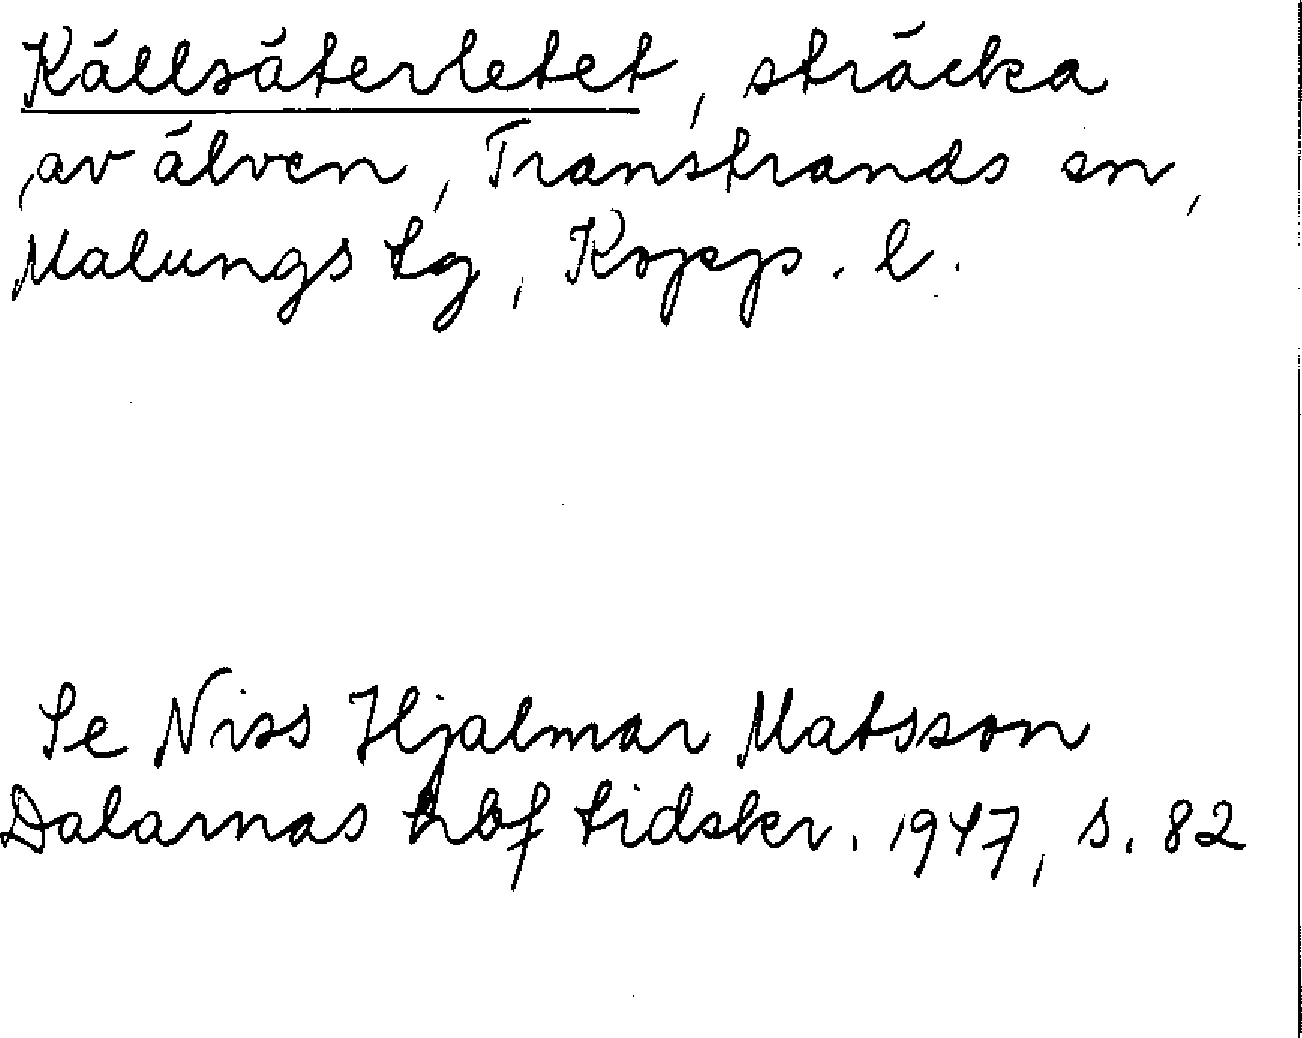 Källsäterletet, sträcka
av älven, Transtrands sn,
Malungs tg, Kopp. l.
Se Niss Hjalmar Matsson
Dalarnas hbf tidskr. 1947, s. 82